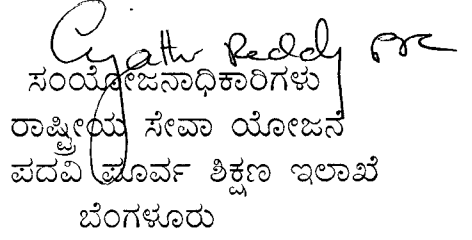 Reddy
ಸಂಯೋಜನಾಧಿಕಾರಿಗಳು
ರಾಷ್ಟ್ರೀಯ ಸೇವಾ ಯೋಜನೆ
ಪದವಿ ಪೂರ್ವ ಶಿಕ್ಷಣ ಇಲಾಖೆ
ಬೆಂಗಳೂರು